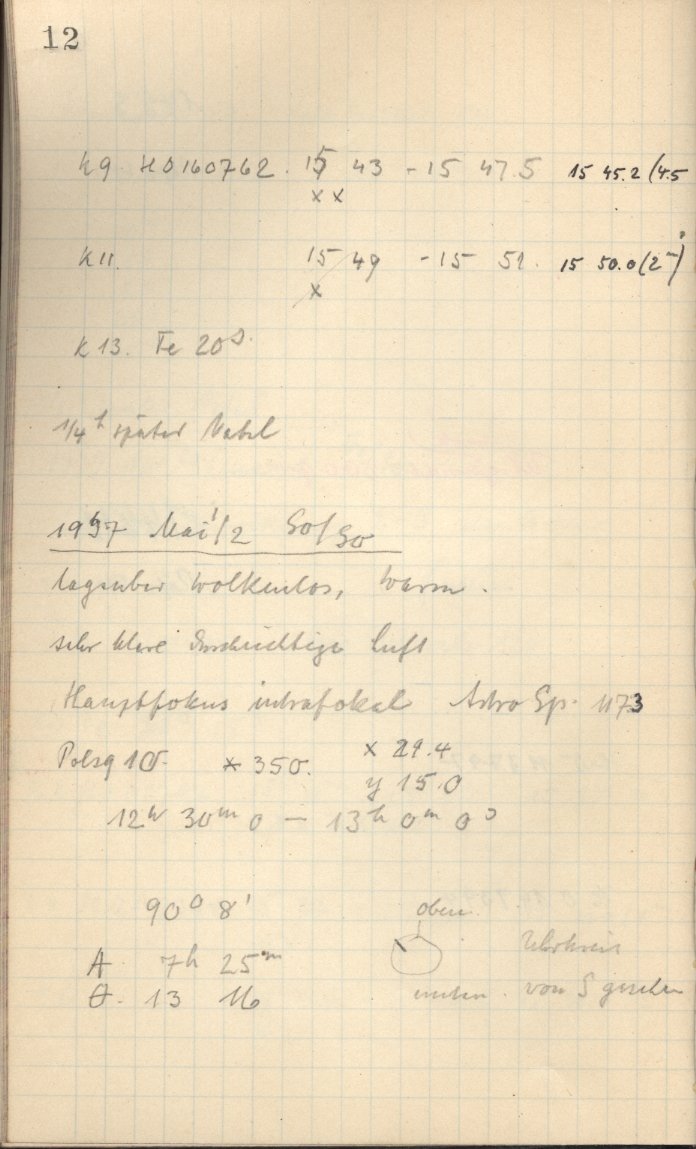 12
K9 HD160762. 15 43 - 15 47.5 15 45.2 (4.5
x x
K11. 15 49 - 15 51. 15 50.0 (2-)
x
K13. Fe 20s
1/4 h später Nebel
1957 Mai 1/2 So/So
tagsüber wolkenlos, warm.
sehr klare durchsichtige Luft
Hauptfokus intrafokal Astro Sp. 1173
Polsq 10. * 350. x 29.4
y 15.0
12h 30m 0 — 13h 0m 0s
90° 8'
oben.
A. 7h 25m Uhrkreis
θ. 13 16 unten. von S gesehen